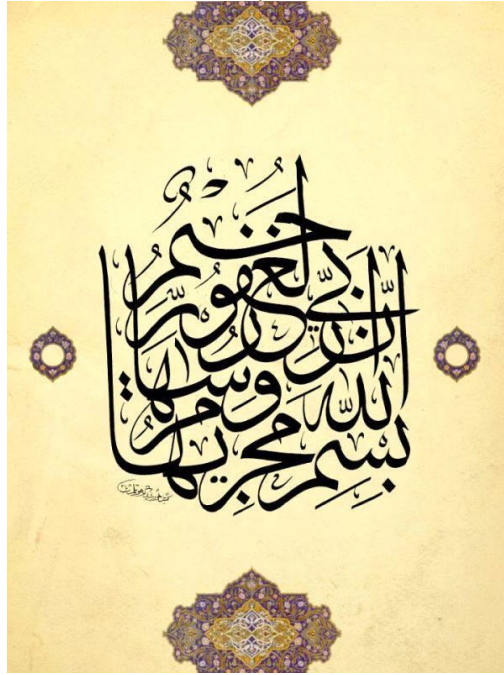 بِسْمِ اللّٰه مجريها و مرسها انّ ربّي لغفورٌ رحيمٌ